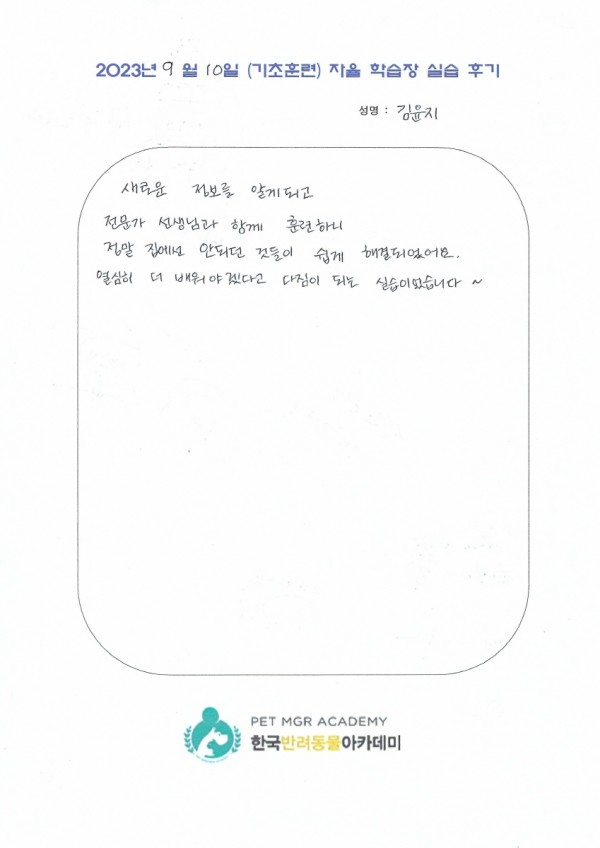 2023년 9월 10일 (기초훈련) 자율 학습장 실습 후기
성명 : 김윤지
새로운 정보를 알게되고
전문가 선생님과 함께 훈련하니
정말 집에선 안되던 것들이 쉽게 해결되었어요.
열심히 더 배워야겠다고 다짐이 되는 실습이었습니다 ~
PET MGR ACADEMY
한국반려동물아카데미